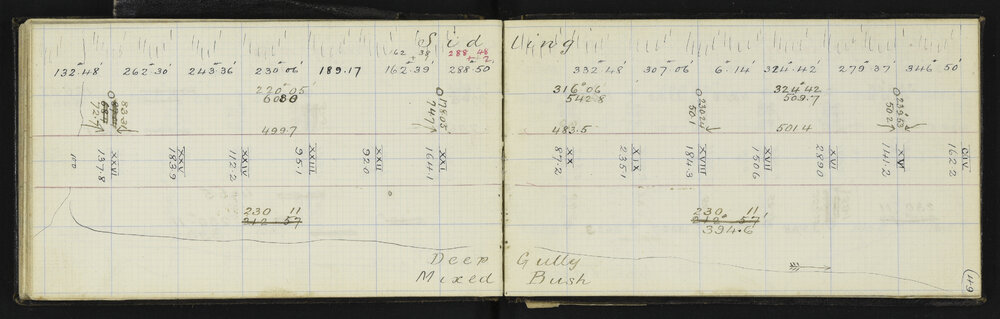 Sid ling
62° 38 288.48
132°48' 262°30' 243°36' 230°06' 189.17 162°39' 288.50 332°48' 307°06' 6°14' 324°42' 279°37' 346°50'
220°05 316°06 324°42
542.8 509.7
833 178°05' 230°24 235°53
727 747 501 502
499.7 483.5 501.4
XXVI XXV XXIV XXIII XXII XXI XX XIX XVIII XVII XVI XV CIV
137.8 183.9 112.2 95.1 92.0 164.1 87.2 235.1 184.3 150.6 289.0 141.2 162.2
230 11 230 11
212 57 212° 57'
394.6
Deep Gully
Mixed Bush
49